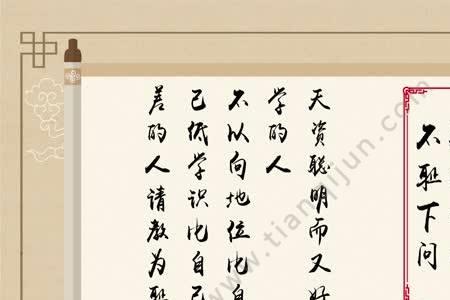 不耻下问
天资聪明而又好
学的人
不以向地位比自
己低学识比自己
差的人请教为耻